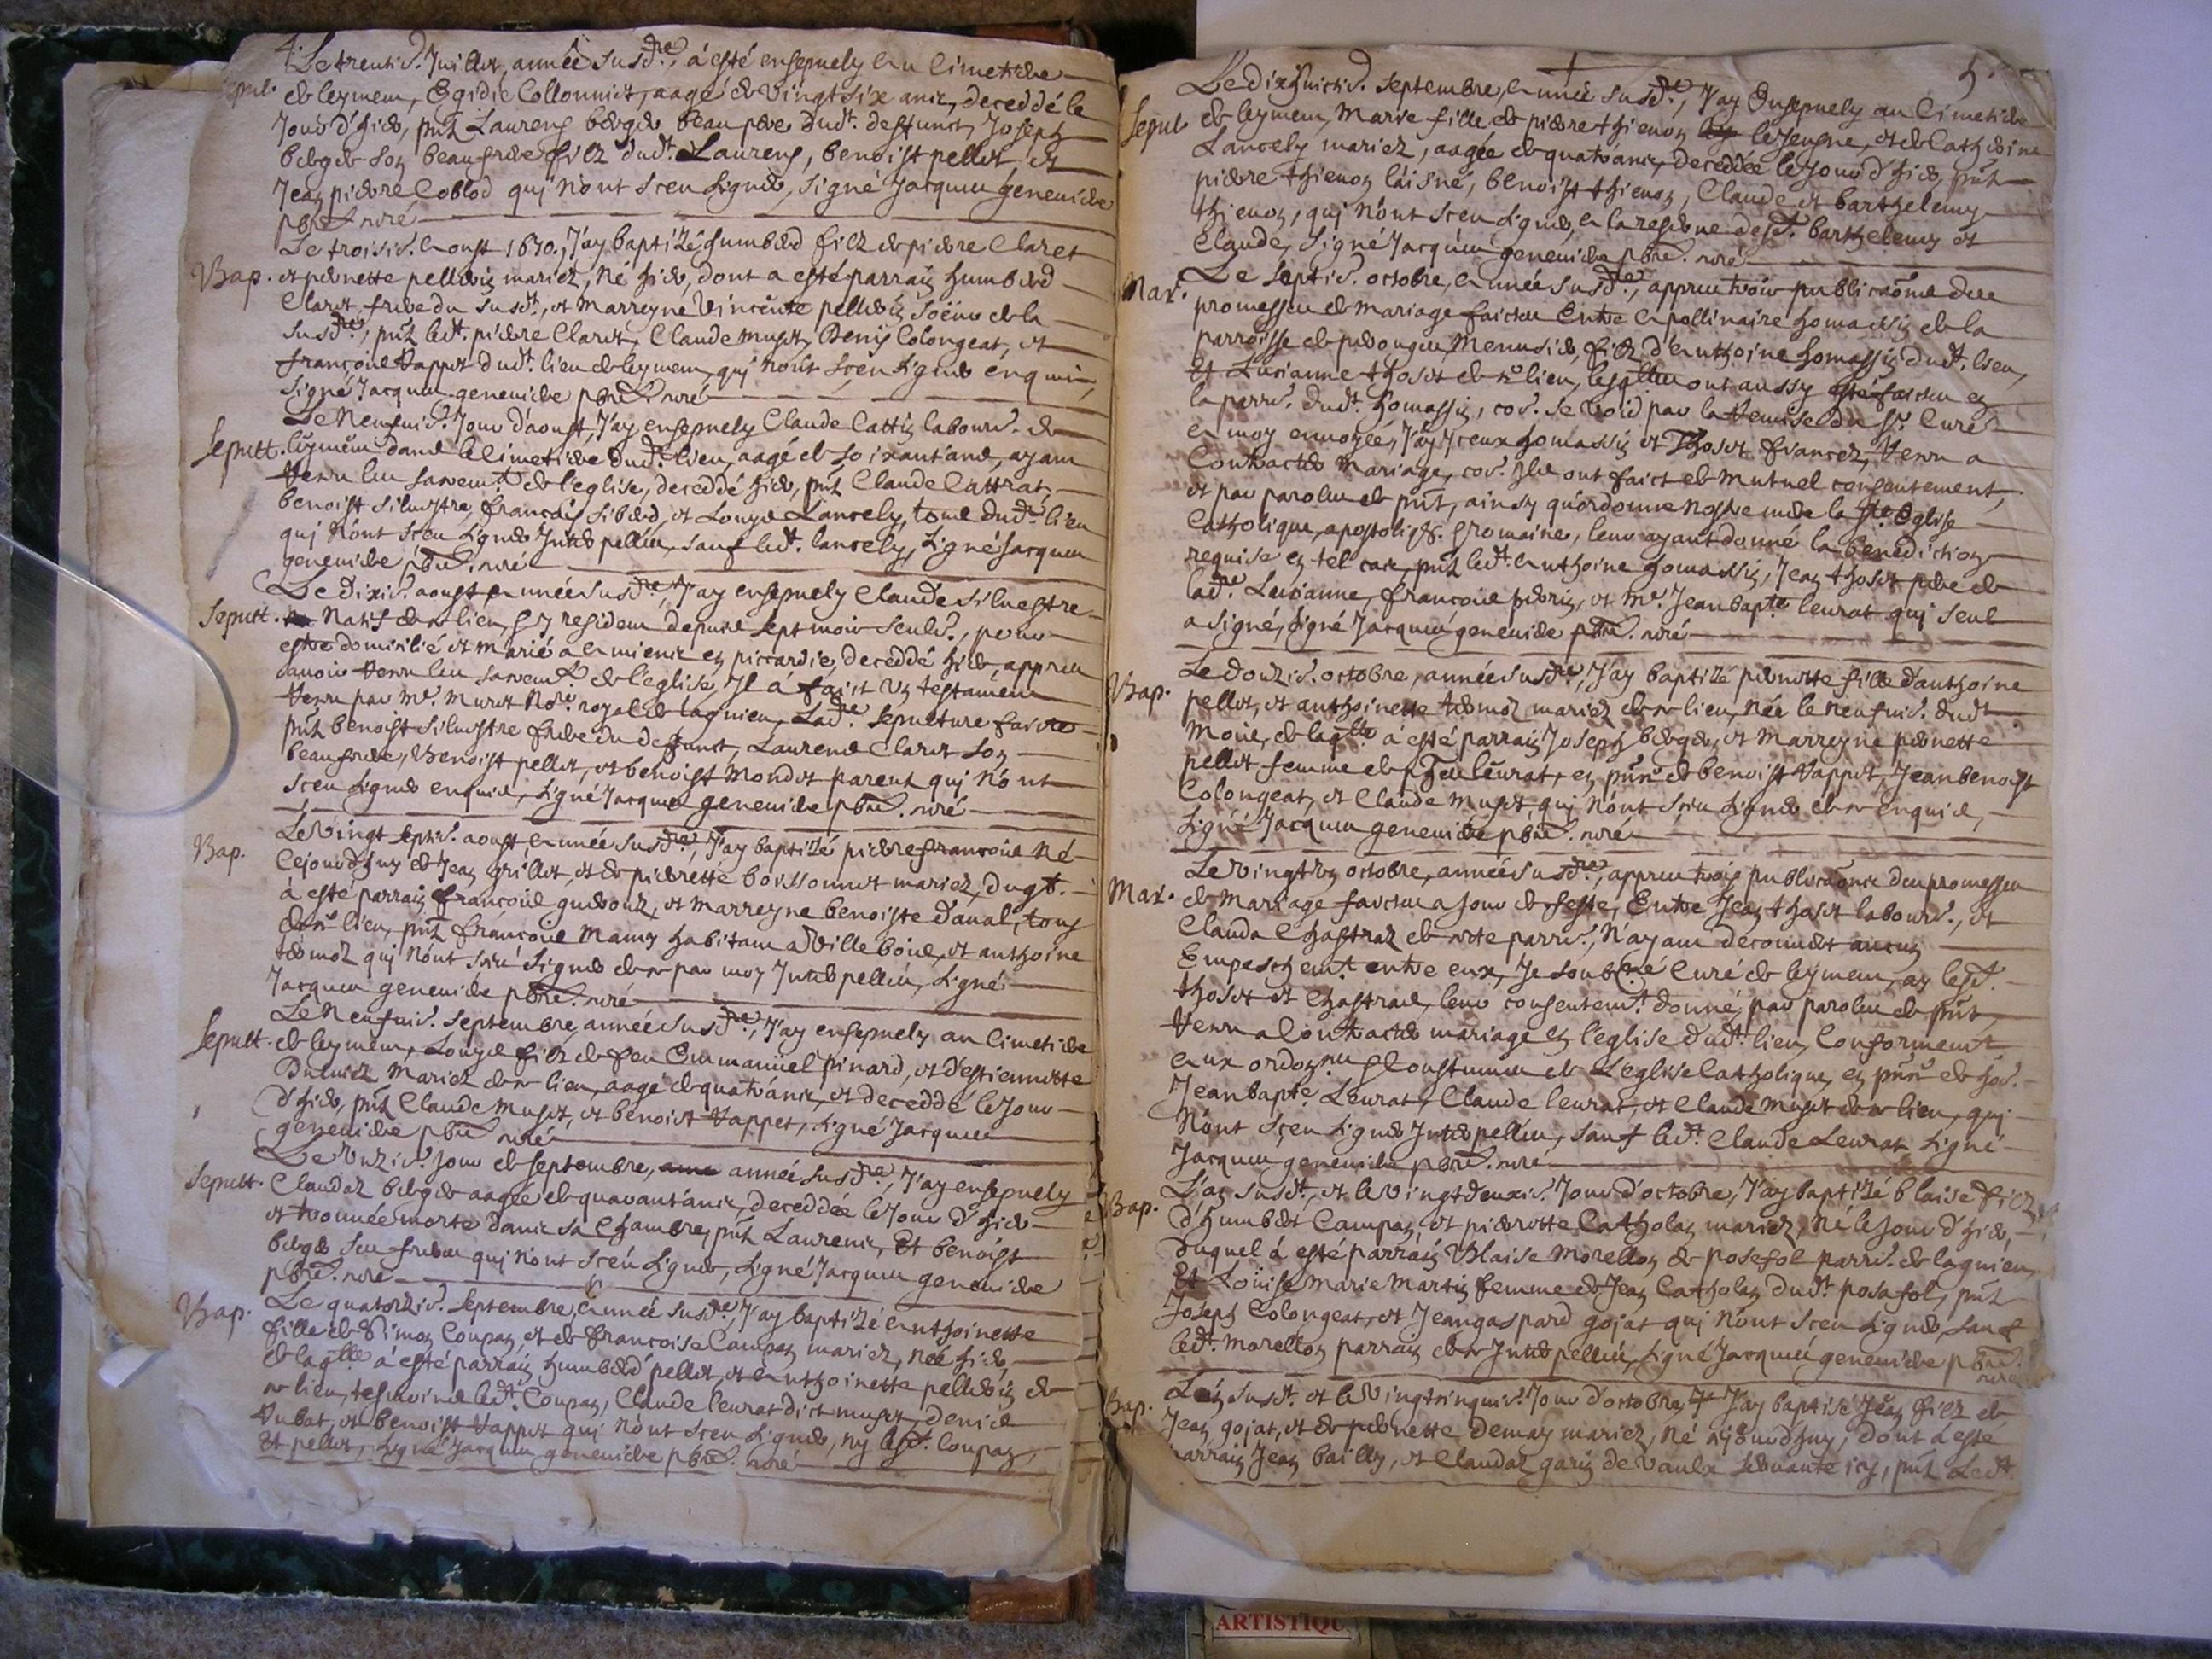 4.
Le trentie. Juillet, année susdre, à esté ensepuely au Cimetiere
Sepul. de leymen, Egidie Collonniet, aagé de vingt six ans, deceddé le
jour d'hier, pnt Laurens berger beau pere dudt. deffunct, Joseph
berger son beaufrere filz dudt. Laurens, benoist pellet et
Jean pierre Coblod qui n'ont sceu signer, signé Jacques genevicke
pbre. curé
Le troisie. aoust 1670, J'ay baptizé humberd filz de pierre Claret
Bap. et pernette pellerin mariez, né hier, dont a esté parrain humberd
Claret frere du susdt, et Marreyne Vincente pellerin soeur de la
susdre, pnt ledt. pierre Claret, Claude muget, Denis Colongeat, et
françois Vappet dudt. lieu de leymen, qui n'ont sceu signer enquis,
signé Jacques genevicke pbre. curé
Le Neufvie. Jour d'aoust, J'ay ensepuely Claude Cattin labourr. de
Sepult. leymen dans le Cimetiere dudt. lieu, aagé de soixant'ans, ayant
receu les sacremts de l'eglise, deceddé hier, pnt Claude Cattrat,
benoist silvestre, françois siberd, et Louys Lancely, tous dudt. lieu
qui n'ont sceu signer Interpellés, sauf ledt. lancely, signé Jacques
genevicke pbre. curé
Le dixie. aoust année susdre, J'ay ensepuely Claude silvestre
Sepult. Natif de ce lieu, et y resident depuis sept mois seulet., pour
estre domicilié et marié a amiens en piccardie, deceddé hier, appres
avoir receu les sacremts de l'eglise, Il à faict un testament
receu par Me. Muret Nore. royal de lagnieu, Ladre. sepulture faicte
pnt benoist silvestre frere du deffunct, Laurens Claret son
beaufrere, Benoist pellet, et benoist Mondet parens qui n'ont
sceu signer enquis, signé Jacques genevicke pbre. curé
Le vingt septie. aoust année susdre, J'ay baptizé pierre françois né
Bap. Cejourd'huy de Jean grillet, et de pierrette boissonnet mariez, duql.
à esté parrain françois guedouz, et marreyne benoiste d'aval, tous
de ce lieu, pnt françois Mamy habitant a Ville bois, et anthoine
termoz qui n'ont sceu signer de ce par moy Interpellés, signé
Jacques genevicke pbre. curé
Le Neufvie. septembre, année susdre, J'ay ensepuely au Cimetiere
Sepult. de leymen, Louys filz de feu Emmanuel pinard, et d'estiennette
Dulniez Mariez de ce lieu, aagé de quatr'ans, et deceddé le jour
d'hier, pnt Claude muget, et benoist Vappet, signé Jacques
genevicke pbre. curé
Le Unzie. jour de septembre, année susdre, J'ay ensepuely
Sepult. Claudaz berger aagée de quarant'ans, deceddée le jour d'hier
et trouvée morte dans sa Chambre, pnt Laurens, Et benoist
berger ses freres qui n'ont sceu signer, signé Jacques genevicke
pbre. curé
Le quatorzie. septembre, année susdre, J'ay baptizé anthoinette
Bap. fille de Simon Coupan et de françoise Campan mariez, née hier,
de laqlle à esté parrain humberd pellet, et anthoinette pellerin de
ce lieu, tesmoins ledt. Coupan, Claude leurat dict muget, denis
Vubat, et benoist Vappet qui n'ont sceu signer, ny lesd. Coupan,
Et pellet, signé Jacques genevicke pbre. curé
5.
Le dixhuictie. septembre, année susdre, J'ay Ensepuely au Cimetiere
Sepul. de leymen, Marie fille de pierre thienoz le Jeusne, et de Catherine
Lancely mariez, aagée de quatr'ans, deceddée le jour d'hier, pnt
pierre thienoz l'aisné, benoist thienoz, Claude et barthelemy
thienoz, qui n'ont sceu signer, a la reserve desd. barthelemy et
Claude, signé Jacques genevicke pbre. curé
Le septie. octobre, année susdre, appres trois publicaõns des
Mar. promesses de mariage faictes Entre apollinaire homassin de la
parroisse de perouges, Menusier, filz d'anthoine homassin dudt. lieu,
Et Lusianne thoset de ce lieu, lesqlles ont aussy esté faictes en
la parre. dudt. homassin, coe. se void par la remise du Sr. Curé
a moy envoyée, J'ay yceux homassin et Thoset fiancez, receu a
Contracter Mariage, coe. Ils ont faict de Mutuel consentement,
et par paroles de pnt, ainsy qu'ordonne nostre mere la Ste Eglise
Catholique, apostoliq. & romaine, leur ayant donné la benediction
requise en tel cas, pnt ledt. anthoine homassin, Jean thoset pere de
ladre. Lusianne, françois pervin, et Me. Jean bapte. leurat qui seul
a signé, signé Jacques genevicke pbre. curé
Le douzie. octobre, année susdre, J'ay baptizé pernette fille d'anthoine
Bap. pellet, et anthoinette termoz mariez de ce lieu, née le neufvie. dudt
mois, de laqlle à esté parrain Joseph berger, et Marreyne pernette
pellet femme de feu leurat, en pnce de benoist Vappet, Jean benoist
Colongeat, et Claude muget qui n'ont sceu signer de ce enquis,
signé Jacques genevicke pbre. curé
Le vingt un octobre, année susdre, appres trois publicaõns des promesses
Mar. de Mariage faictes a jour de feste, Entre Jean thoset labourr., et
Clauda Chastraz de cete parre., n'ayant decouvert aucun
Empeschemt. entre eux, Je soubné Curé de leymen, ay lesd.
thoset et Chastraz, leur consentemt donné, par paroles de pnt,
receu a Contracter mariage en l'eglise dudt. lieu, Conformemt
aux ordonces & coustumes de L'eglise Catholique, en pnce de hoe.
Jean bapte. Leurat, Claude leurat, et Claude muget de ce lieu, qui
N'ont sceu signer Interpellés, sauf ledt. Claude Leurat signé
Jacques genevicke pbre. curé
L'an susdt., et le vingt deuxie. jour d'octobre, J'ay baptizé blaise filz
Bap. d'humbert Campan, et pierrette Catholan mariez, né le jour d'hier,
duquel à esté parrain Blaise Morellon de posefol parre. de lagnieu,
Et Loüise Marie Martin femme de Jean Catholan dudt. posafol, pnt
Joseph Colongeat, et Jean gaspard gojat qui n'ont sceu signer, sauf
ledt. Morellon parrain de ce Interpellés, signé Jacques genevicke pbre.
curé
L'an susdt. et le vingtcinquie. jour d'octobre, J'ay baptisé Jean filz de
Bap. Jean gojat, et de pernette Demay mariez, né cejourd'huy, dont a esté
parrain Jean bailly, et Claudaz garin de Vaulx servante icy, pnt Ledt
ARTISTIQU